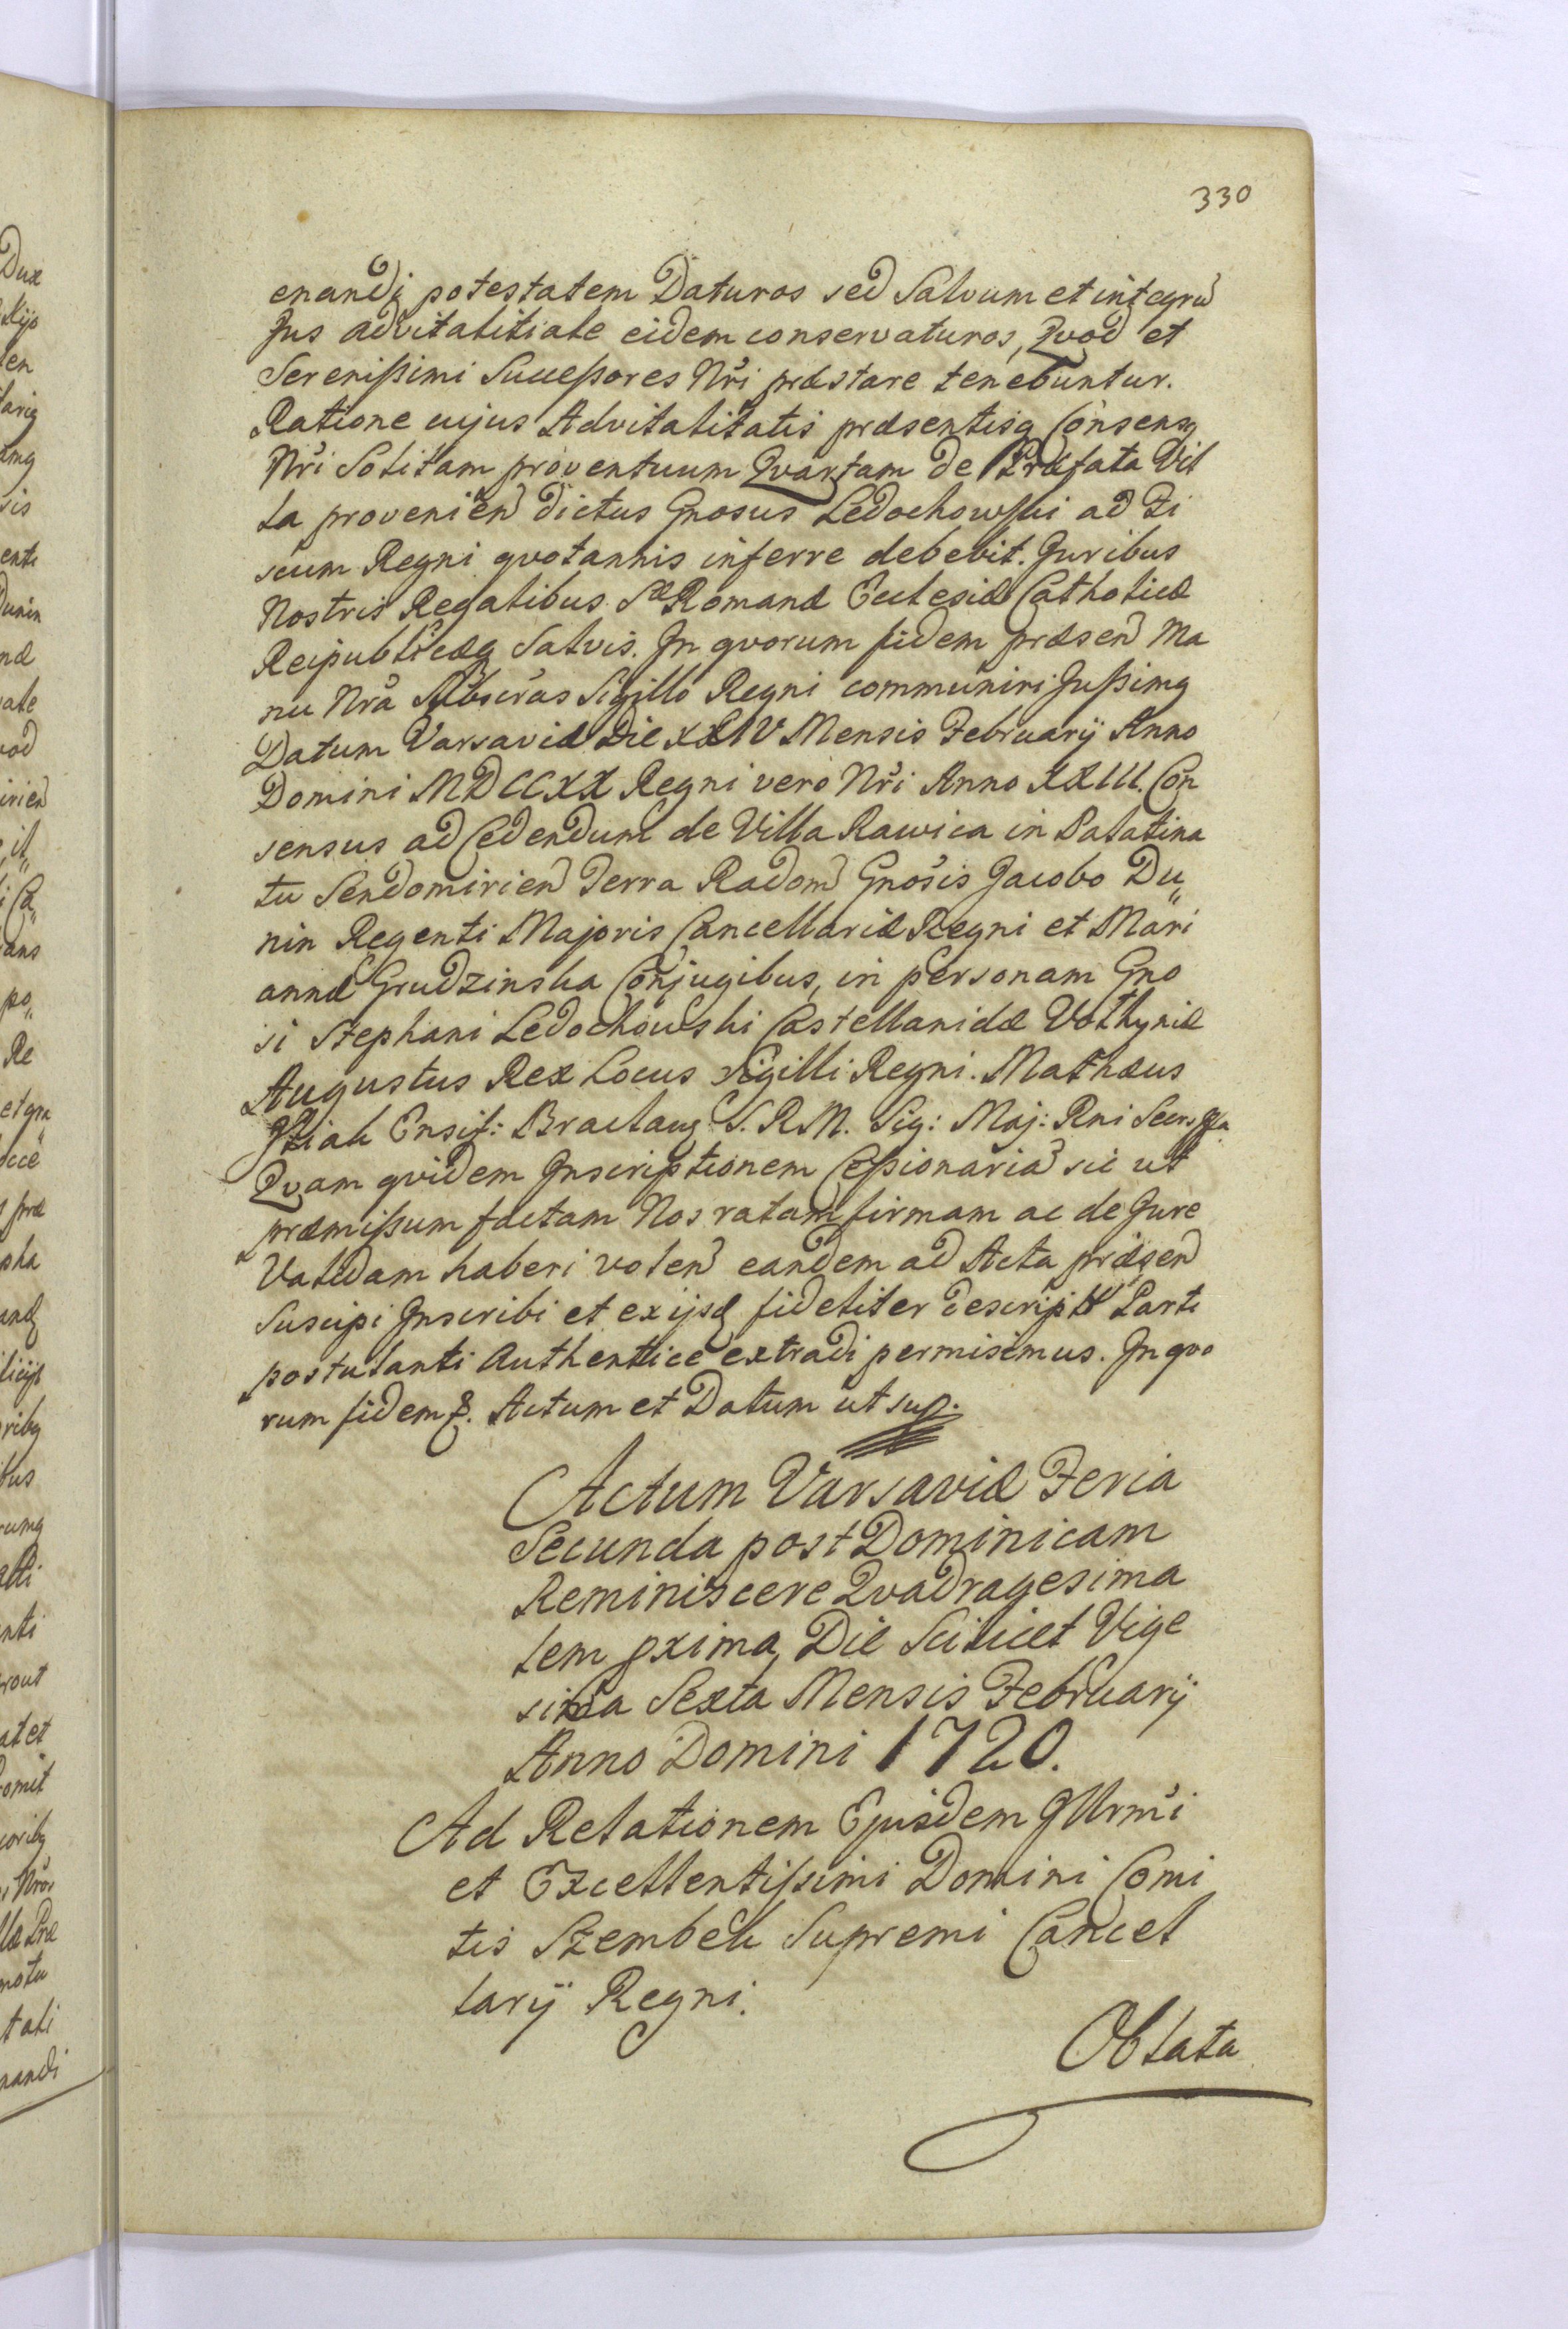 330
enandi potestatem Daturos sed Salvum et integrũ
Jus advitalitiale eidem conservaturos, Qvod et
Serenißimi Succeßores Nr̃i præstare tenebuntur.
Ratione cujus Advitalitatis præsentisq Consensq
Nr̃i Solitam proventuum Qvartam de Præfata Vil
la provenien̄ dictus Gnosus Ledochowski ad Fi
scum Regni qvotannis inferre debebit. Juribus
Nostris Regalibus Sæ Romanæ Ecclesiæ Catholicæ
Reipublicæq Salvis. In qvorum fidem præsen̄ Ma
nu Nr̃a Subscr̃as Sigillo Regni communiri Jußimq
Datum Varsaviæ Die XXIV Mensis February Anno
Domini MDCCXX Regni vero Nr̃i Anno XXIII. Con
sensus ad Cedendum de Villa Rawica in Palatina
tu Sendomirien̄ Terra Radom̄ Gnosis Jacobo Du„
nin Regenti Majoris Cancellariæ Regni et Mari
annæ Grudzinska Conjugibus, in personam Gno
si Stephani Ledochowski Castellanidæ Volhyniæ
Augustus Rex Locus Sigilli Regni. Mathæus
Ensif: S. R. M. Sig: Maj: Rni
Qvam qvidem Inscriptionem Ceßionariã sic ut
præmißum factam Nos ratam firmam ac de Jure
Validam haberi volen̄ eandem ad Acta præsen̄
Suscipi Inscribi et ex ijsd fideliter descriptã Parti
postulanti Authentice extradi permisimus. In qvo
rum fidem &. Actum et Datum ut sup.
Actum Varsaviæ Feria
Secunda post Dominicam
Reminiscere Qvadragesima
lem pxima, Die Scilicet Vige
sima Sexta Mensis February
Anno Domini 1720.
Ad Relationem Ejusdem Illrm̃i
et Excellentißimi Domini Comi
tis Szembek Supremi Cancel
larij Regni.
Oblata